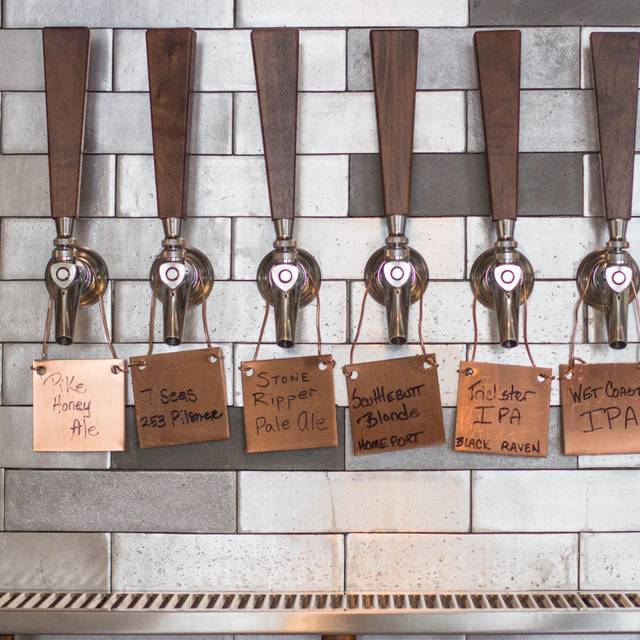 Pike
Honey
Ale
7 Seas
253 Pilsner
STONE
Ripper
Pale Ale
Scuttlebutt
Blonde
HOMEPORT
Trickster
IPA
BLACK RAVEN
WET COAST
IPA